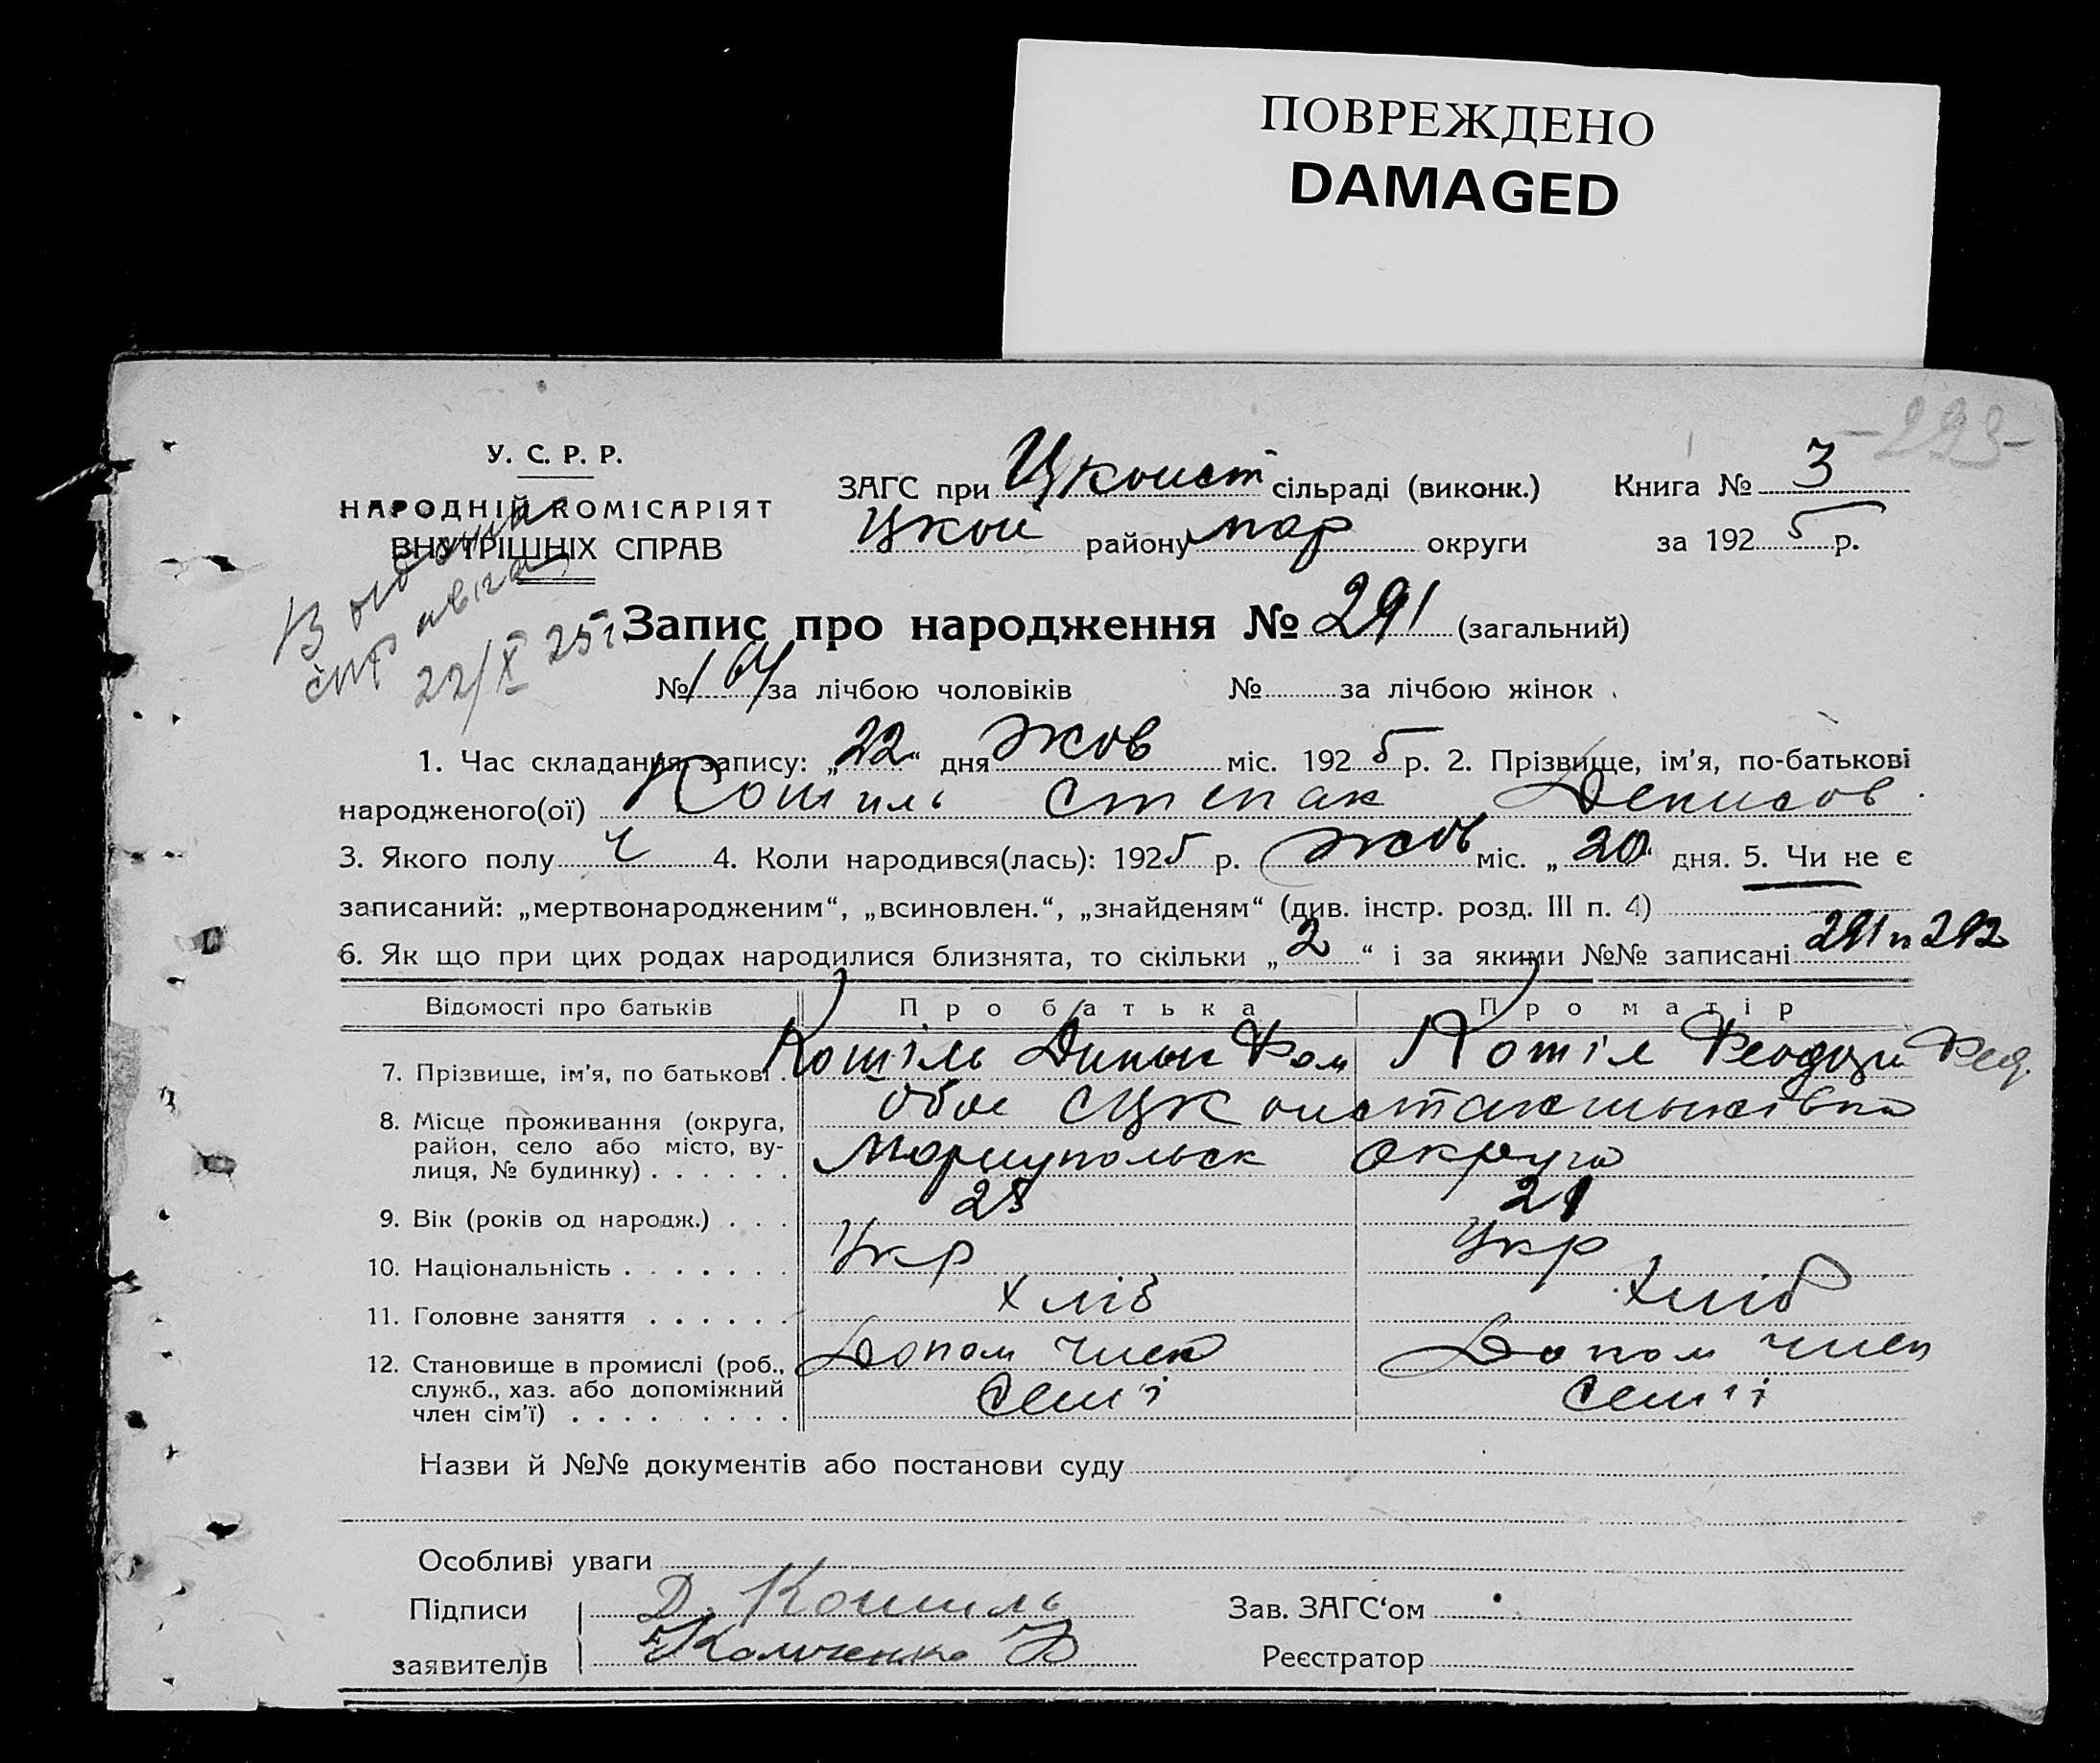 ПОВРЕЖДЕНО
DAMAGED
-293-
У. С. Р. Р.
НАРОДНІЙ КОМІСАРІЯТ
ВНУТРІШНІХ СПРАВ
ЗАГС при Цконст сільраді (виконк.) Книга № 3
Цкой району мар округи за 1925 р.
22/X 25 г
Запис про народження № 291 (загальний)
№ 164 за лічбою чоловіків № за лічбою жінок
1. Час складання запису: „22“ дня Жов міс. 1925 р. 2. Прізвище, ім'я, по-батькові
народженого(ої) Кошиль Степан Денисов
3. Якого полу ч 4. Коли народився(лась): 1925 р. Жов міс. „20“ дня. 5. Чи не є
записаний: „мертвонародженим“, „всиновлен.“, „знайденям“ (див. інстр. розд. III п. 4)
6. Як що при цих родах народилися близнята, то скільки „2“ і за якими №№ записані 291 и 292
Відомості про батьків Про батька Про матір
7. Прізвище, ім'я, по батькові Кошіль Хом Кошіл Фед.
8. Місце проживання (округа, обое Константинівка
район, село або місто, ву- Мариупольск округа
лиця, № будинку)
9. Вік (років од народж.) 25 21
10. Національність Укр Укр
11. Головне заняття Хліб Хліб
12. Становище в промислі (роб., Допом член Допом член
служб., хаз. або допоміжний семі семі
член сім'ї)
Назви й №№ документів або постанови суду
Особливі уваги
Підписи Д. Кошиль Зав. ЗАГС'ом
заявителів Реєстратор